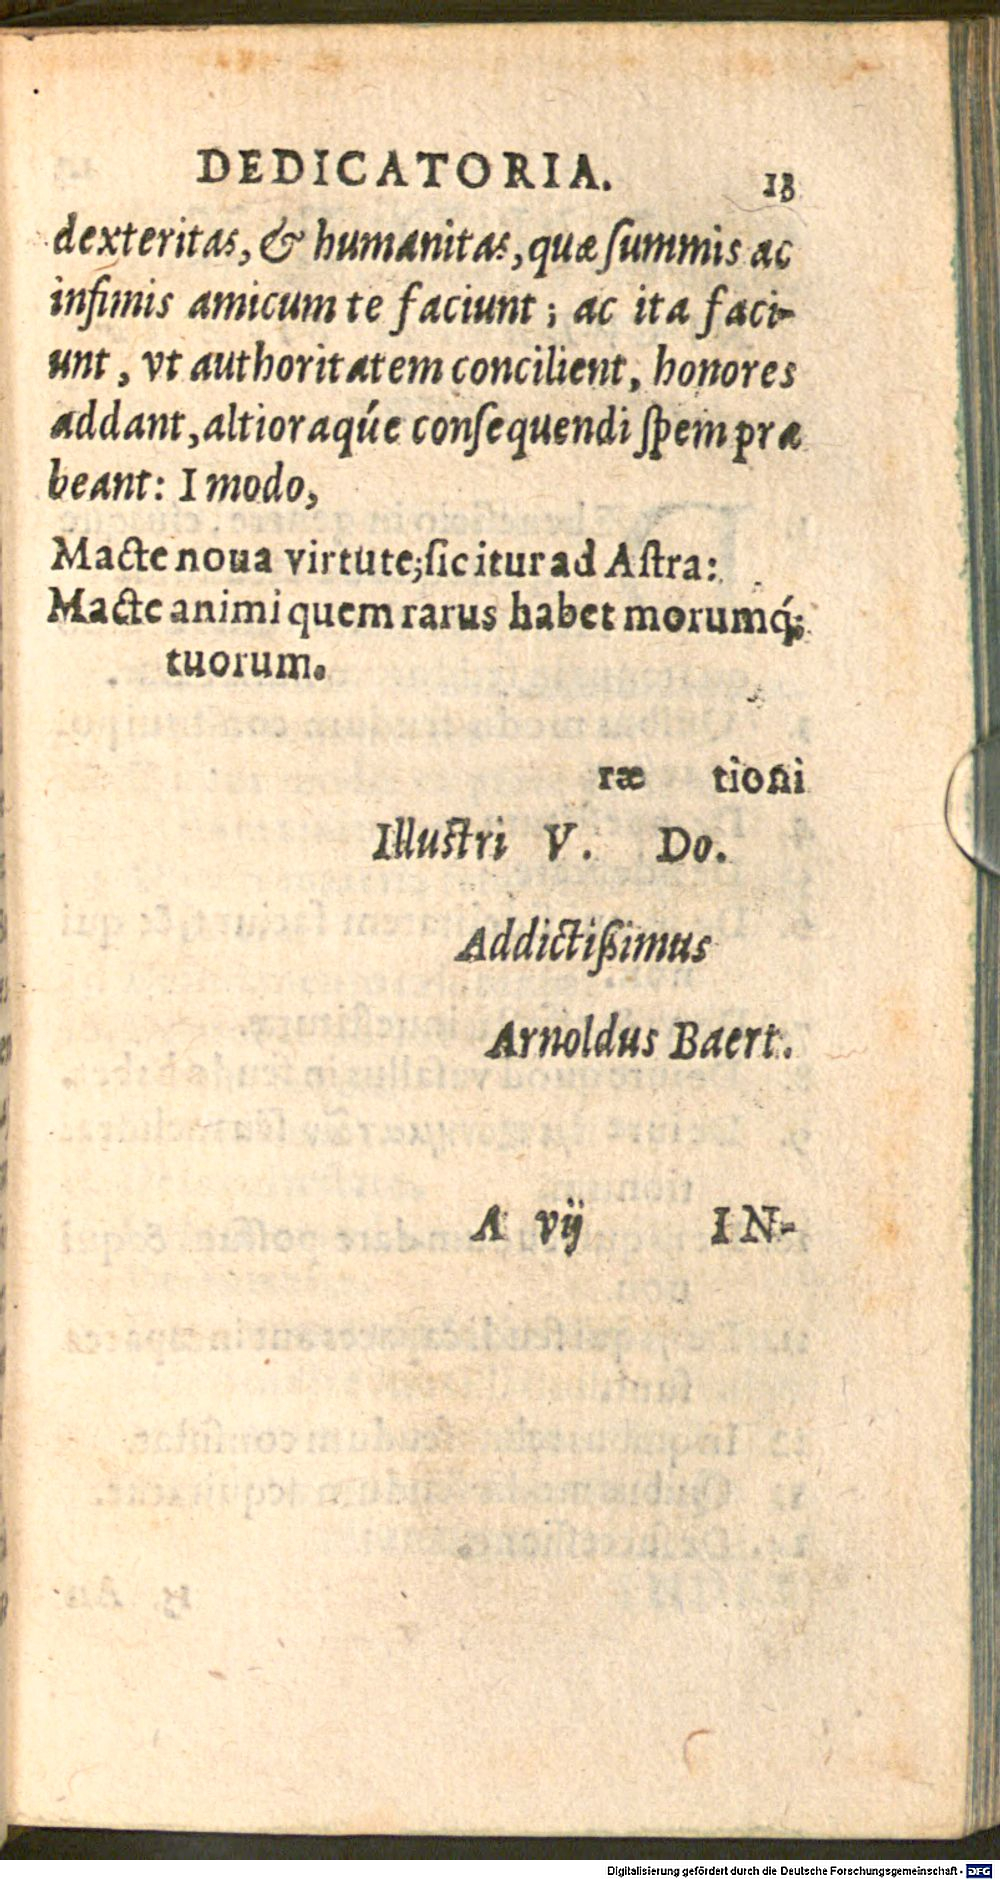 DEDICATORIA. 13
dexteritas, & humanitas, quæ ſummis ac
infimis amicum te faciunt; ac ita faci-
unt, vt authoritatem concilient, honores
addant, altioraqúe conſequendi ſpem præ
beant: I modo,
Macte noua virtute; ſic itur ad Aſtra:
Macte animi quem rarus habet morumq́;
tuorum.
ræ tioni
Illuſtri V. Do.
Addictiſsimus
Arnoldus Baert.
A vij IN-
Digitalisierung gefördert durch die Deutsche Forschungsgemeinschaft - DFG